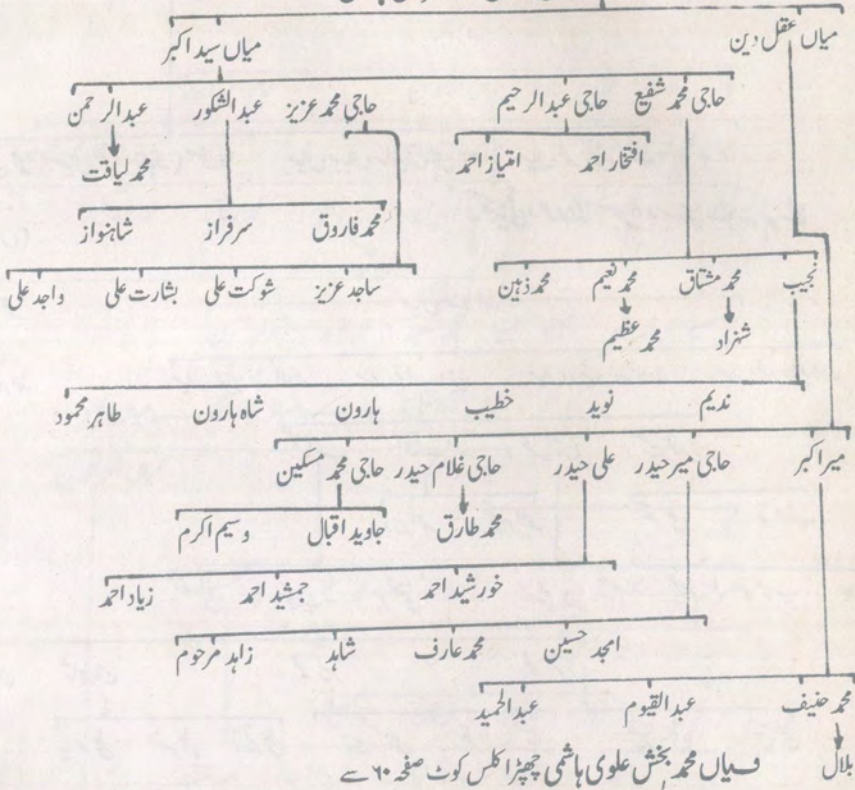 میاں عقل دین میاں سید اکبر
حاجی محمد شفیع حاجی عبدالرحیم حاجی محمد عزیز عبدالشکور عبدالرحمن
افتخار احمد امتیاز احمد محمد لیاقت
محمد فاروق سرفراز شاہنواز
نجیب محمد مشتاق محمد نعیم محمد ذہین ساجد عزیز شوکت علی بشارت علی واجد علی
شہزاد محمد عظیم
ندیم نوید خطیب ہارون شاہ ہارون طاہر محمود
میر اکبر حاجی میر حیدر علی حیدر حاجی غلام حیدر حاجی محمد مسکین
محمد طارق جاوید اقبال وسیم اکرم
خورشید احمد جمشید احمد زیاد احمد
امجد حسین محمد عارف شاہد زاہد مرحوم
محمد حنیف عبدالقیوم عبدالحمید
بلال میاں محمد بخش علوی ہاشمی چھپڑا کلس کوٹ صفحہ ۶۰ سے